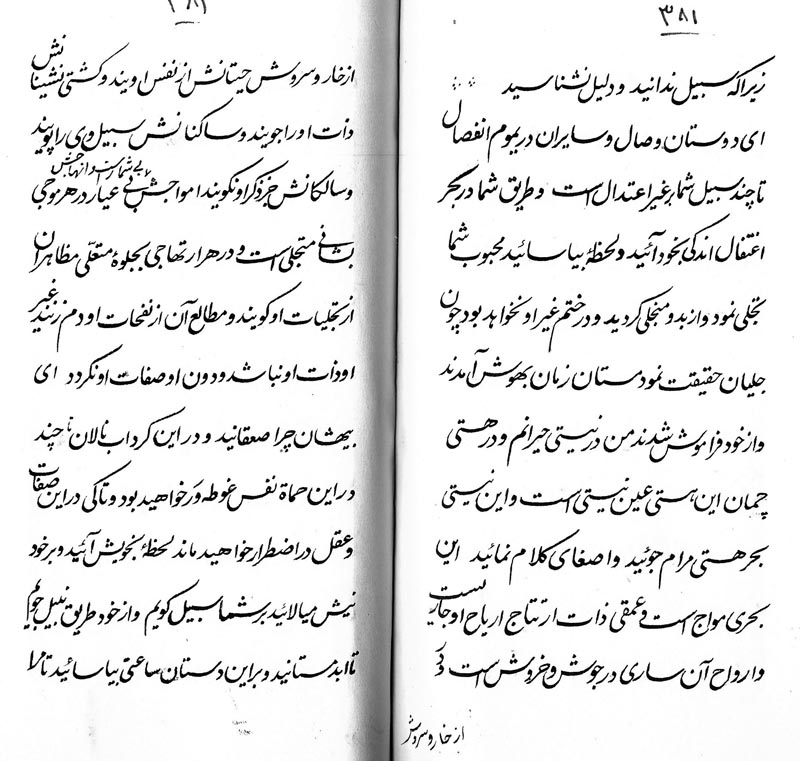 ۳۸۱
زیرا که سبیل ندانید و دلیل نشناسید
ای دوستان وصال و سایران در یموم انفصال
تا چند سبیل شما بر غیر اعتدال است و طریق شما در بحر
اغتفال اندکی بخود آئید و لحظهٔ بیاسائید محبوب شما
تجلی نمود و از بدو متجلی گردید و در ختم غیر او نخواهد بود چون
جلیان حقیقت نمود مستان زمان بهوش آمدند
و از خود فراموش شدند من در نیستی حیرانم و در هستی
چمان این هستی عین نیستی است و این نیستی
بحر هستی مرام جوئید و اصغای کلام نمائید این
بحری مواج است و عمقی ذات ارتتاج اریاح او جاریست
و ارواح آن ساری در جوش و خروش است و در
از خار و سروش
۳۸۲
از خار و سروش حیتانش از نفس اویند و کشتی نشینانش
ذات او را جویند و ساکنانش سبیل وی را پویند
و سالکانش جز ذکر او نگویند امواجش بی عیار در هر موجی
بی شمار است و انهاجش
بشانی متجلی است و در هزار تهاجی بجلوهٔ متعلّی مظاهران
از تجلیات او گویند و مطالع آن از نفحات او دم زنند غیر
او ذات او نباشد و دون او صفات او نگردد ای
بیهشان چرا صعقانید و در این گرداب نالان تا چند
در این حماة نفس غوطه ور خواهید بود و تا کی در این صفات
و عقل در اضطرار خواهید ماند لحظهٔ بخویش آئید و بر خود
نیش میالائید بر شما سبیل گویم و از خود طریق نبیل جویم
تا ابد مستانید و بر این دستان ساعتی بیاسائید تا مرا